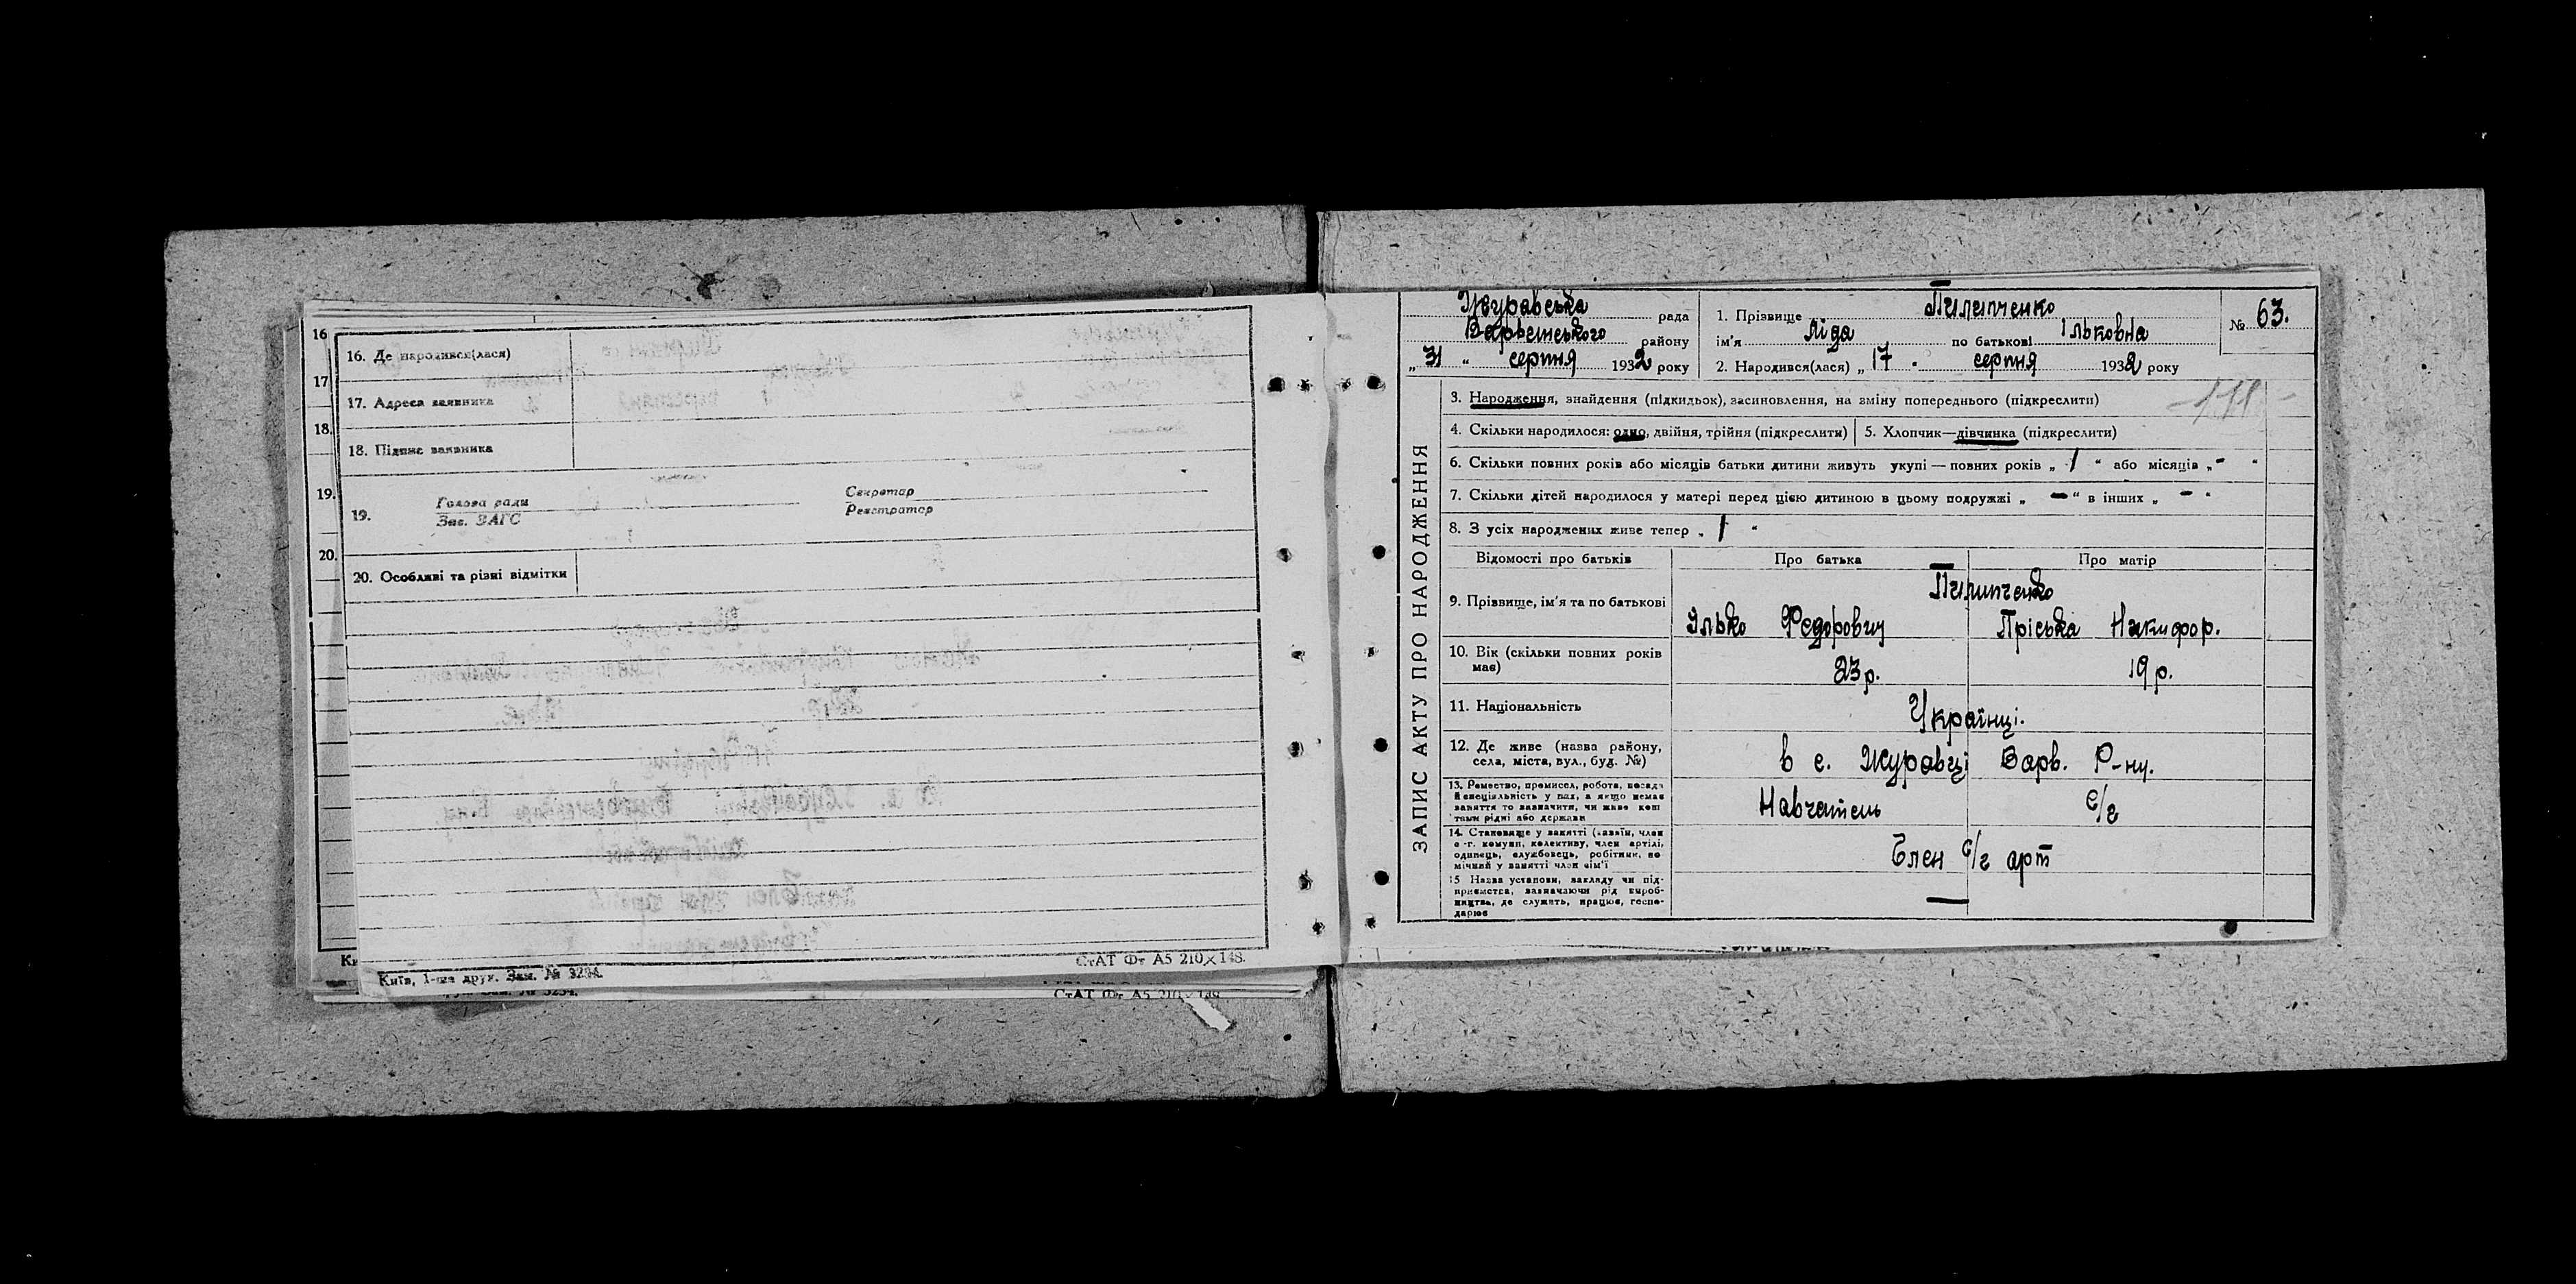 16
17
18.
19.
20.
16. Де народився(лася)
17. Адреса заявника
18. Підпис заявника
19. Голова ради
Зав. ЗАГС
Секретар
Реєстратор
20. Особливі та різні відмітки
Київ, 1-ша друк. Зам. № 3234.
СтАТ Фт А5 210×148.
СтАТ Фт А5 210×148
Журавська рада
Варвинського району
„31“ серпня 1932 року
1. Прізвище Пилипченко
ім'я Ліда по батькові Ільковна
2. Народився(лася) „17 " серпня 1932 року
№ 63.
ЗАПИС АКТУ ПРО НАРОДЖЕННЯ
3. Народження, знайдення (підкидьок), засиновлення, на зміну попереднього (підкреслити)
4. Скільки народилося: одно, двійня, трійня (підкреслити) 5. Хлопчик—дівчинка (підкреслити)
6. Скільки повних років або місяців батьки дитини живуть укупі — повних років „ 1 “ або місяців „ - “
7. Скільки дітей народилося у матері перед цією дитиною в цьому подружжі „ — “ в інших „ - “
8. З усіх народжених живе тепер „ 1 “
Відомості про батьків Про батька Про матір
9. Прізвище, ім'я та по батькові
Пилипченко
Ілько Федорович Пріська Никифор.
10. Вік (скільки повних років має)
23 р. 19 р.
11. Національність Українці.
12. Де живе (назва району,
села, міста, вул., буд. №)
в с. Журавці Варв. Р-ну.
13. Ремество, промисел, робота, посада
й спеціяльність у них, а якщо немає
заняття то зазначити, чи живе кош
тами рідні або держави
Навчатель с/г
14. Становище у занятті (хазяїн, член
с.-г. комуни, колективу, член артілі,
одинець, службовець, робітник, по
мічний у занятті член сім'ї
Член с/г арт
15 Назва установи, закладу чи під-
приємства, зазначаючи рід вироб-
ництва, де служить, працює, госпо-
дарює
—